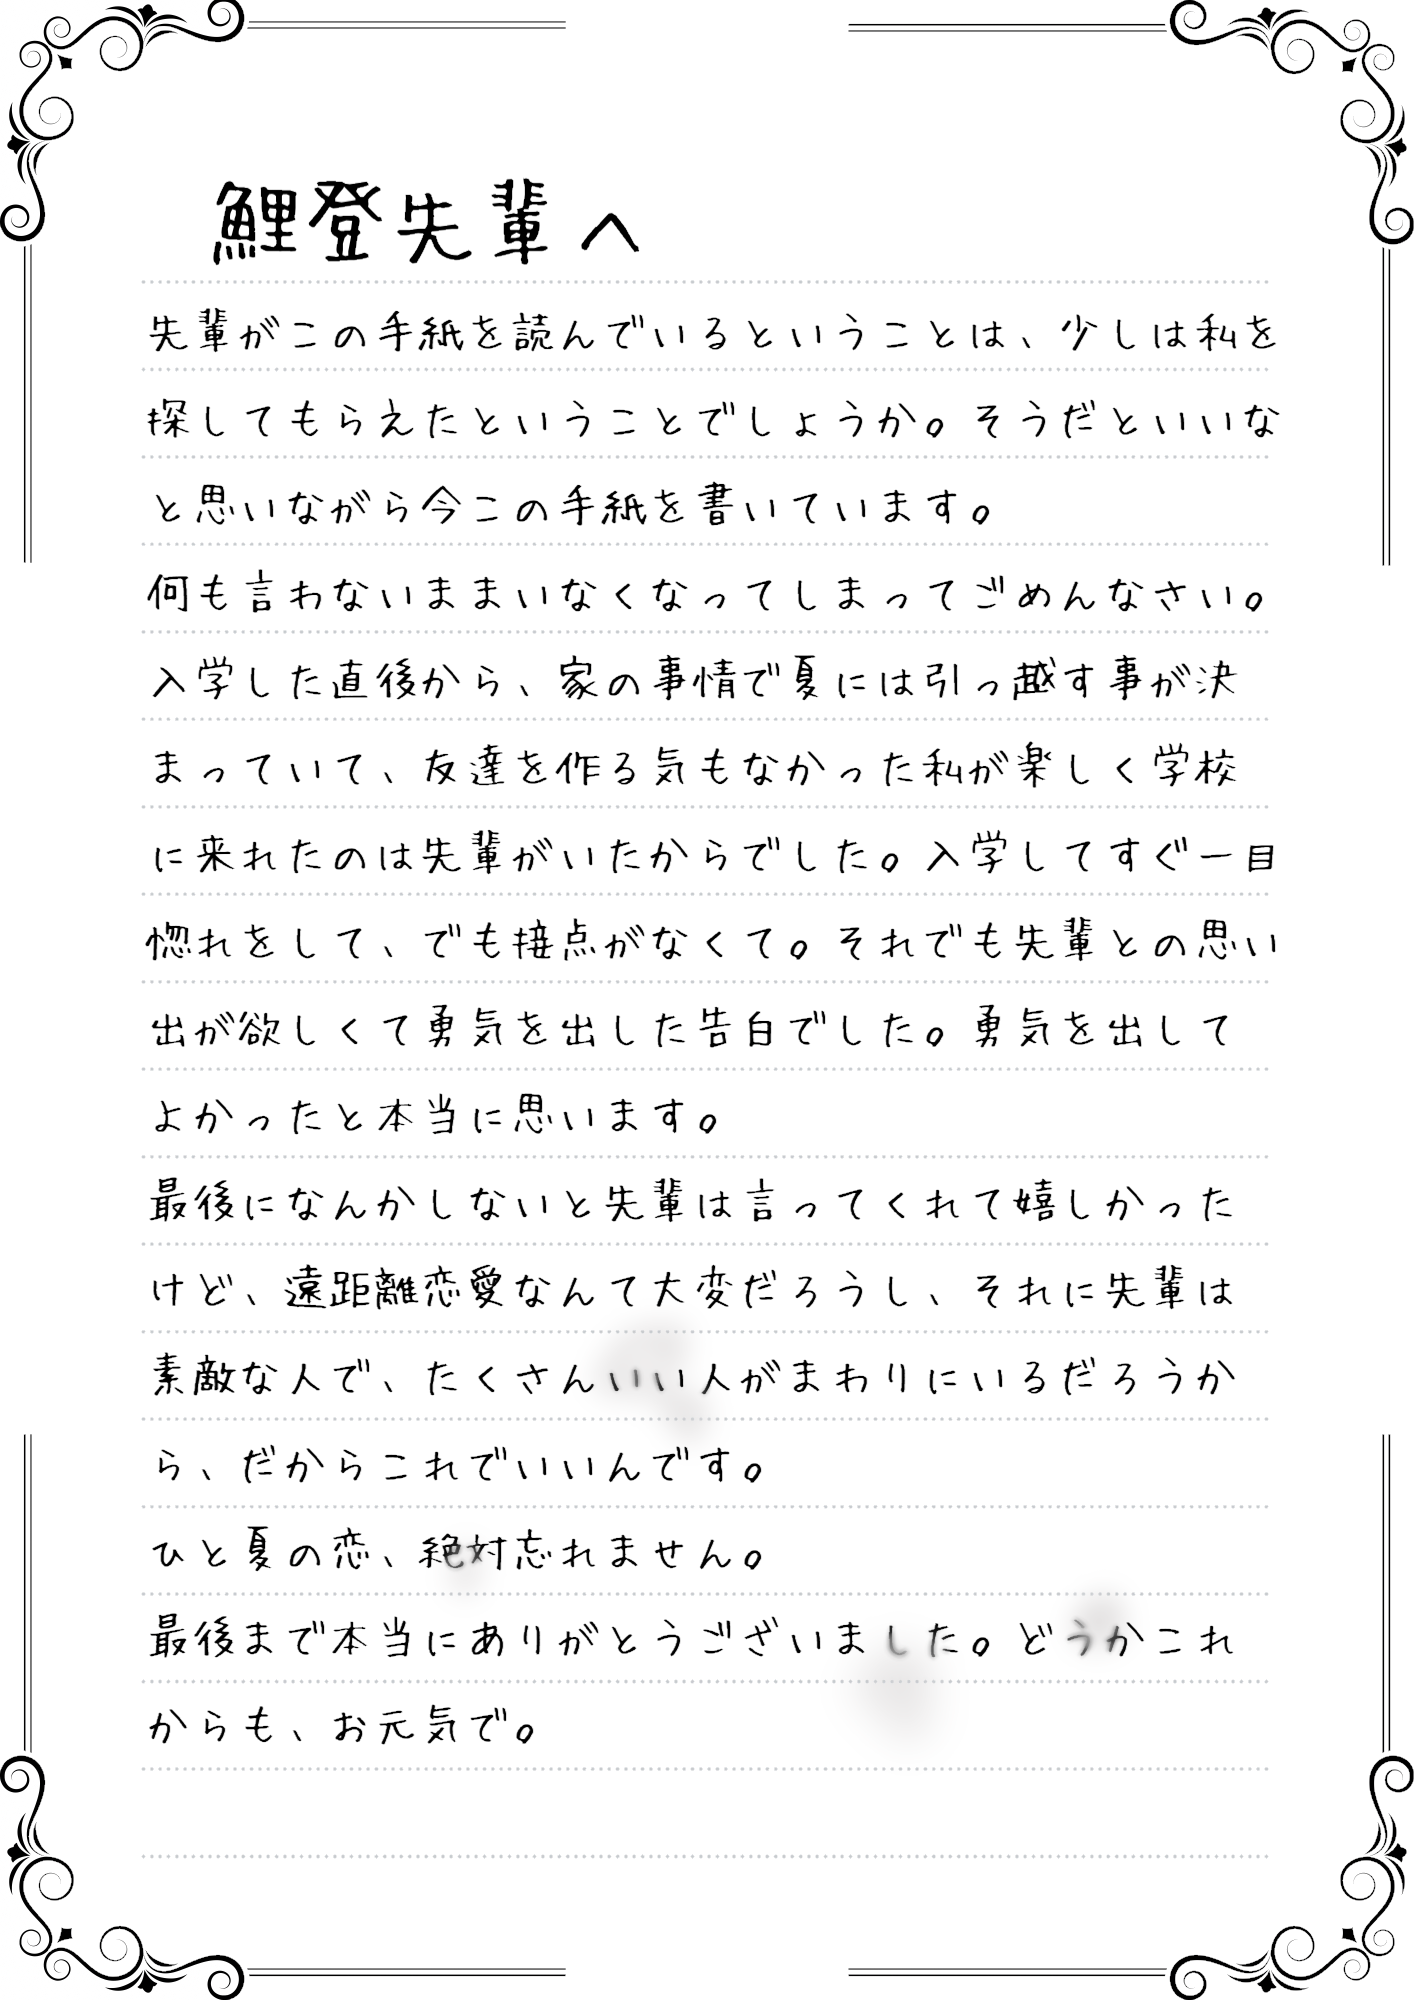 鯉登先輩へ
先輩がこの手紙を読んでいるということは、少しは私を
探してもらえたということでしょうか。そうだといいな
と思いながら今この手紙を書いています。
何も言わないままいなくなってしまってごめんなさい。
入学した直後から、家の事情で夏には引っ越す事が決
まっていて、友達を作る気もなかった私が楽しく学校
に来れたのは先輩がいたからでした。入学してすぐ一目
惚れをして、でも接点がなくて。それでも先輩との思い
出が欲しくて勇気を出した告白でした。勇気を出して
よかったと本当に思います。
最後になんかしないと先輩は言ってくれて嬉しかった
けど、遠距離恋愛なんて大変だろうし、それに先輩は
素敵な人で、たくさんいい人がまわりにいるだろうか
ら、だからこれでいいんです。
ひと夏の恋、絶対忘れません。
最後まで本当にありがとうございました。どうかこれ
からも、お元気で。